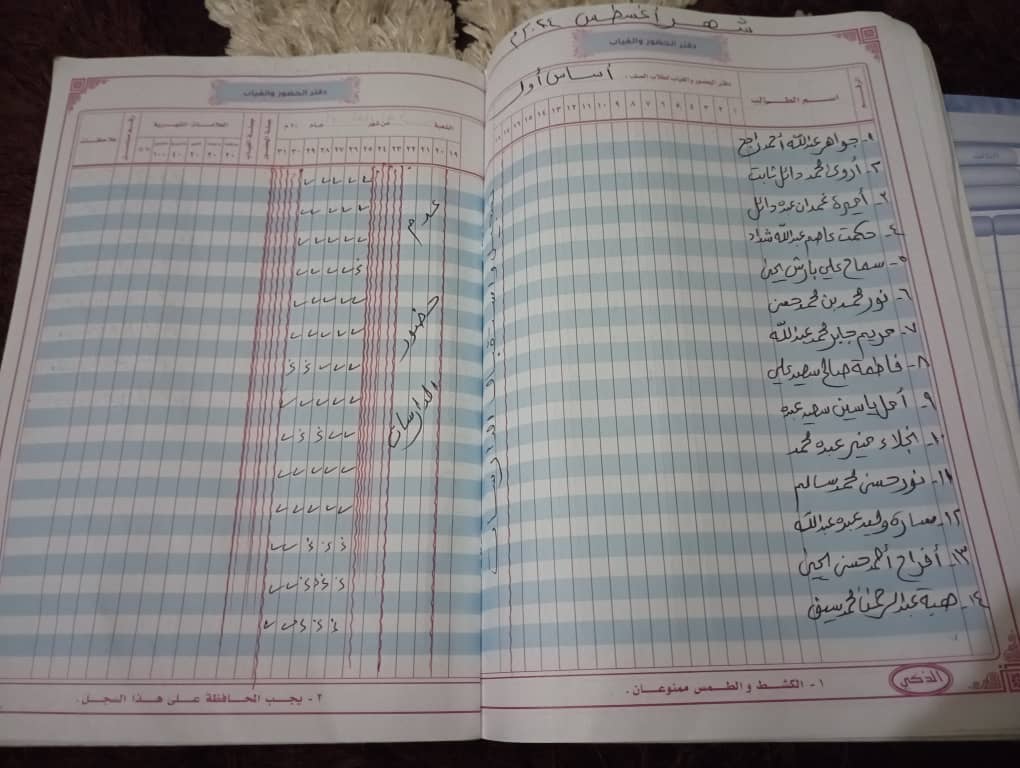 شهر أغسطس ٢٠٢٤م
دفتر الحضور والغياب
دفتر الحضور والغياب لطلاب الصف : أساس أول
اسم الطالب
١ ٢ ٣ ٤ ٥ ٦ ٧ ٨ ٩ ١٠ ١١ ١٢ ١٣ ١٤ ١٥ ١٦ ١٧ ١٨
١- جواهر عبدالله أحمد راجح
٢- أروى محمد دائل ثابت
٣- أميرة غمدان عبده دائل
٤- حكمت عاصم عبدالله شداد
٥- سماح علي بارش يحيى
٦- نور محمد بن محمد حسن
٧- مريم جابر محمد عبدالله
٨- فاطمة صالح سعيد علي
٩- أمل ياسين سعيد عبده
١٠- نجلاء منير عبده محمد
١١- نور حسن محمد سالم
١٢- سارة وليد عبده عبدالله
١٣- أفراح أحمد حسن يحيى
١٤- هبة عبدالرحمن محمد سيف
١ - الكشط و الطمس ممنوعان .
الذكي
دفتر الحضور والغياب
الشعبة من شهر عام ٢٠ م
العلامات الشهرية
ملاحظات
١٩ ٢٠ ٢١ ٢٢ ٢٣ ٢٤ ٢٥ ٢٦ ٢٧ ٢٨ ٢٩ ٣٠ ٣١
عدم
حضور
الدارسات
٢ - يجب الحافظة على هذا السجل .